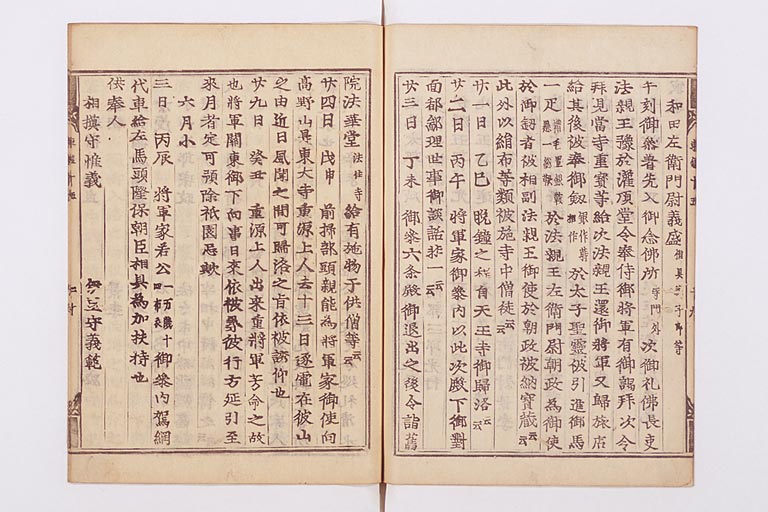 和田左衛門尉義盛相具郎等
午刻御参着先入御念佛所寺門外次御礼佛長吏
法親王豫於灌頂堂令奉侍御将軍有御謁拝次令
拝見當寺重寳等給次法親王還御将軍又歸旅店
給其後被奉御釼銀作蒔柄作於太子聖霊被引進御馬
一疋置銀鞍懸一総鞦於法親王左衛門尉朝政為御使
於御訪者被相副法親王御使於朝政被納寳蔵云云
此外以絹布等類被施寺中僧徒云云
廿一日 乙巳 晩鐘之程自天王寺御歸洛云云
廿二日 丙午 将軍家御参内以此次殿下御對
面都鄙理世事御談話非一云云
廿三日 丁未 御参六条殿御退出之後令詣舊
院法華堂法住寺給有施物于供僧等云云
廿四日 戊申 前掃部頭親能為将軍家御使向
高野山是東大寺重源上人去十三日逐電在彼山
之由近日風聞之間可歸洛之旨依被諾仰也
廿九日 癸丑 重源上人出来重将軍芳命之故
也将軍關東御下向事日来依被界彼行方延引至
来月者定可頒除祇園忌歟
六月小
三日 丙辰 将軍家若公一万歳十御参内駕網
代車給左馬頭隆保朝臣相具為加扶持也
供奉人
相摸守惟義 伊豆守義範